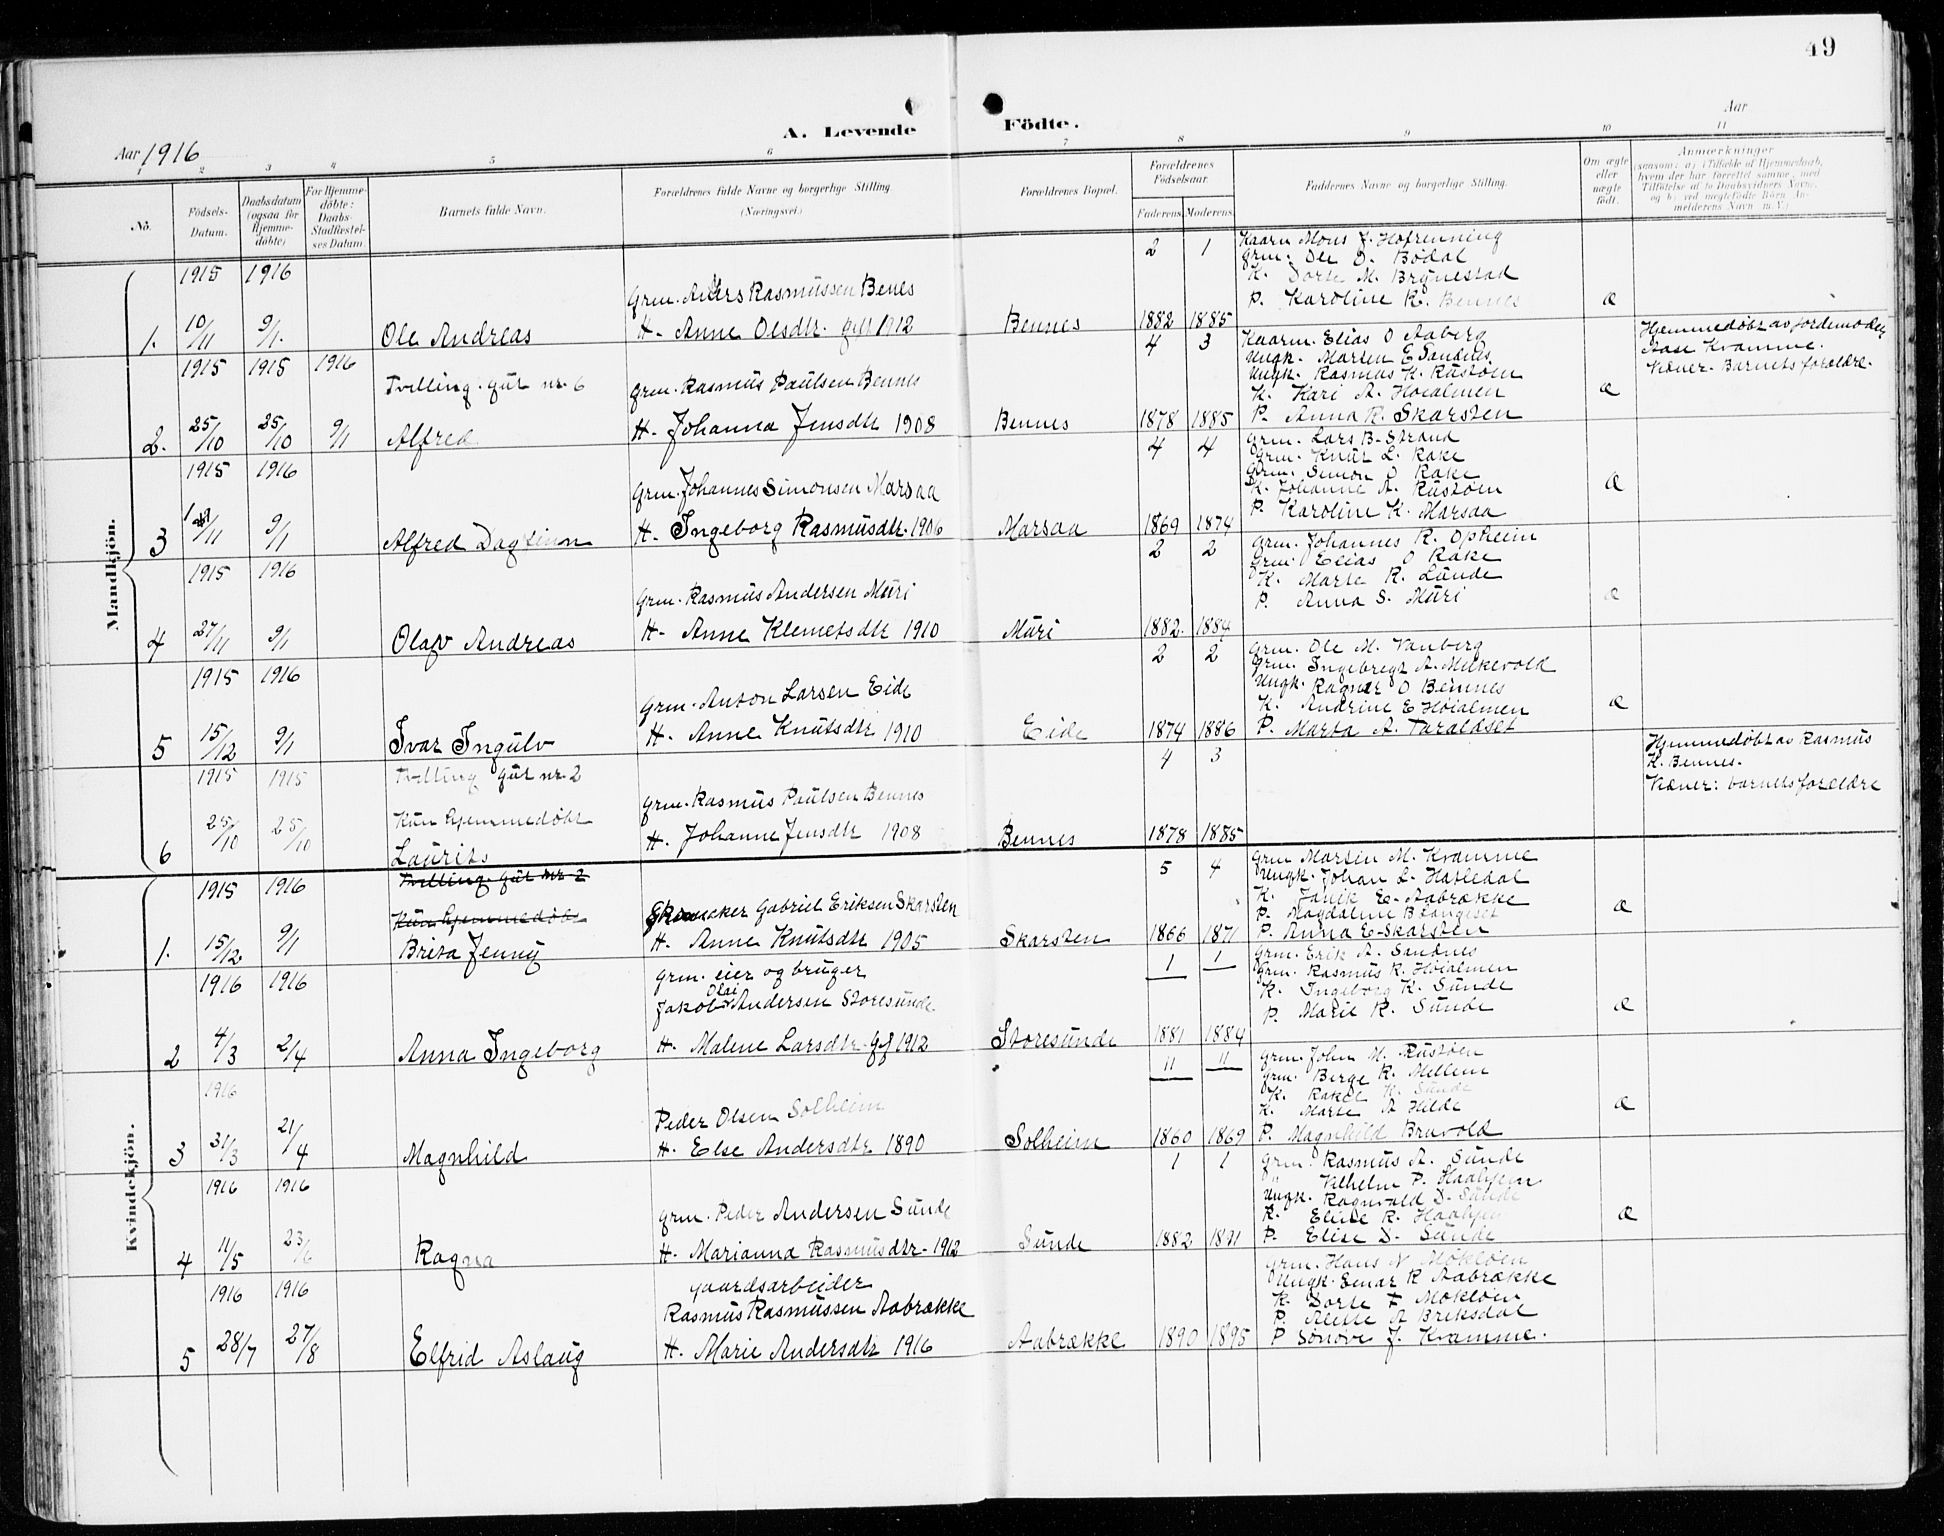 49
A. Levende Födte.
Aar 1916
Aar
1 2 3 4 5 6 7 8 9 10 11
No.
Födsels-Datum.
Daabsdatum (ogsaa for Hjemme-döbte)
For Hjemme-döbte: Daabs-Stadfæstel-ses Datum
Barnets fulde Navn.
Forældrenes fulde Navne og borgerlige Stilling. (Næringsvei.)
Forældrenes Bopæl.
Forældrenes Födselsaar.
Faderens Moderens
Faddernes Navne og borgerlige Stilling.
Om ægte eller uægte födt.
Anmærkninger
(saasom: a) i Tilfælde af Hjemmedaab, hvem der har forrettet samme, med Tilföielse af to Daabsvidners Navne, og b) ved uægtefödte Börn An-melderens Navn m. V.)
Mandkjön.
1915 1916
2 1
Kaarm Mons J. Hofrenning
Grm. Ole O. Bödal
K. Dorte M. Brynestad
P. Karoline R. Bennes
Grm. Anders Rasmussen Benes
1. 10/11 9/1. Ole Andreas
H. Anne Olsdtr. gift 1912
Bennes 1882 1885
Æ
1915 1915 1916
Tvilling. gut nr. 6
Grm. Rasmus Paulsen Bennes
4 3
Kaarm. Elias O Aaberg
Ungk. Marten E Sandnes
Ungk. Rasmus K. Rustøen
K. Kari A. Høialmen
P. Anna R. Skarsten
2. 25/10 25/10 9/1 Alfred
H. Johanna Jensdtr 1908
Bennes 1878 1885
Æ
Hjemmedøbt av jordemoder
Aase Kramme.
Vidner. Barnets forældre.
1915 1916
Grm. Johannes Simonsen Marsaa
4 4
Grm. Lars B. Strand
Grm. Knut L. Rake
Grm. Simon O Rake
K. Johanne A. Rustøen
P. Karoline K. Marsaa
3 /11 9/1 Alfred Dagfinn
H. Ingeborg Rasmusdtr. 1906
Marsaa 1869 1874
Æ
1915 1916
Grm. Rasmus Andersen Muri
2 2
Grm. Johannes R. Opheim
Grm. Elias O Rake
K. Marte R. Lunde
P. Anna S. Muri
4 27/11 9/1 Olav Andreas
H. Anne Klemetsdtr 1910
Muri 1882. 1884
Æ
1915 1916
Grm. Anton Larsen Eide
2 2
Grm. Ole M. Vanberg
Grm. Ingebregt A. Melkevold
Ungk. Ragnar O Bennes
K. Andrine E Høialmen
P. Marta A. Taraldset
5 15/12 9/1 Ivar Ingulv
H. Anne Knutsdtr 1910
Eide 1874 1886
Æ
1915 1915
Tvilling gut nr. 2
Kun hjemmedøbt
Grm. Rasmus Paulsen Bennes
4 3
6 25/10 25/10 Laurits
H. Johanne Jensdtr 1908
Bennes 1878 1885
Hjemmedøbt av Rasmus
K. Bennes.
Vidner: barnets forældre
Kvindekjön.
1915 1916
Tvilling gut nr. 2
Kun hjemmedøbt
5 4
Grm Marten M. Kramme
Ungk. Johan L. Hafledal
K. Janik E. Aabrække
P. Magdaline B Langeset
P. Anna E. Skarsten
Gabriel Eriksen Skarsten
1. 15/12 9/1 Brita Jenny
H. Anne Knutsdtr 1905
Skarsten 1866 1871
Æ
1916 1916
Grm. eier og bruger
Jakob Olai Andersen Storesunde
1 1
Grm. Erik A. Sandnes
Grm. Rasmus R. Høialmen
K. Ingeborg K. Sunde
P. Marie R. Sunde
2 4/3 2/4 Anna Ingeborg
H. Malene Larsdtr. gf 1912
Storesunde 1881 1884
Æ
1916
Peder Olsen Solheim
11 11
Grm. John M. Rustøen
Grm. Berge R. Mellem
K. Rakel K. Sunde
K. Marte A Hilde
P. Magnhild Bruvold
3 31/3 21/4 Magnhild
H. Else Andersdtr 1890
Solheim 1860 1869
Æ
1916 1916
Grm. Peder Andersen Sunde
1 1
Grm. Rasmus A. Sunde
" Vilhelm P. Haahjem
Ungk. Ragnvald D. Sunde
K. Eline R. Haahjem
P. Elise D. Sunde
4 11/5 23/6 Ragna
H. Marianna Rasmusdtr. 1912
Sunde 1882 1891
Æ
1916 1916
gaardsarbeider
Rasmus Rasmussen Aabrække
Grm. Hans N Møkløen
Ungk. Einar R Aabrække
K. Dorte F Møkløen
P. Alette A Briksdal
P Sønove J. Kramme.
5 28/7 27/8 Elfrid Aslaug
H. Marie Andersdtr 1916
Aabrække 1890 1895